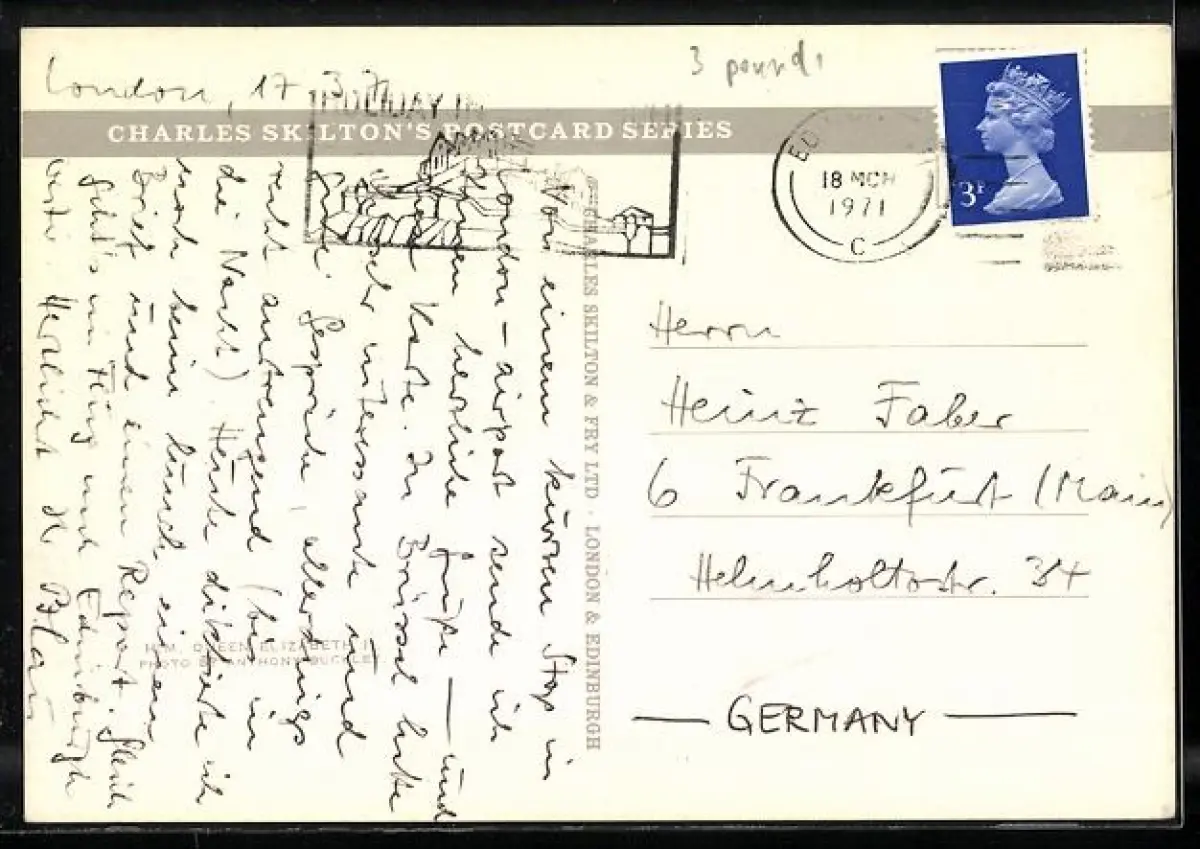 London, 17 3 71
3 pounds
HOLIDAY IN
CHARLES SKILTON'S POSTCARD SERIES
18 MCH
1971
C
3P
Von einem kurzen Stop in
London - airport sende ich
Ihnen herzliche Grüße - und
Karte. In Brüssel hatte
ich sehr interessante und
Gespräche, allerdings
recht anstrengend (bis in
die Nacht). Heute diktierte ich
nach beim Lunch einen
Brief und einen Report. Gleich
geht's im Flug nach Edinburgh
Herzlichst Ihr
CHARLES SKILTON & FRY LTD · LONDON & EDINBURGH
H.M. QUEEN ELIZABETH II
PHOTO BY ANTHONY BUCKLEY
Herrn
Heinz Faber
6 Frankfurt (Main)
Helmholtzstr. 34
GERMANY